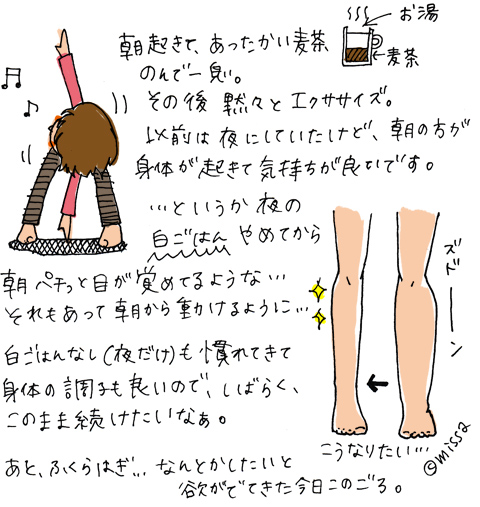 お湯
麦茶
朝起きて、あったかい麦茶
のんで一息。
その後 黙々とエクササイズ。
以前は夜にしていたけど、朝の方が
身体が起きて気持ちが良いです。
…というか夜の
白ごはんやめてから
朝パチッと目が覚めてるような…
それもあって朝から動けるように…
白ごはんなし(夜だけ)も慣れてきて
身体の調子も良いので、しばらく、
このまま続けたいなぁ。
ズドーン
こうなりたい…
©missa
あと、ふくらはぎ… なんとかしたいと
欲がでてきた今日このごろ。